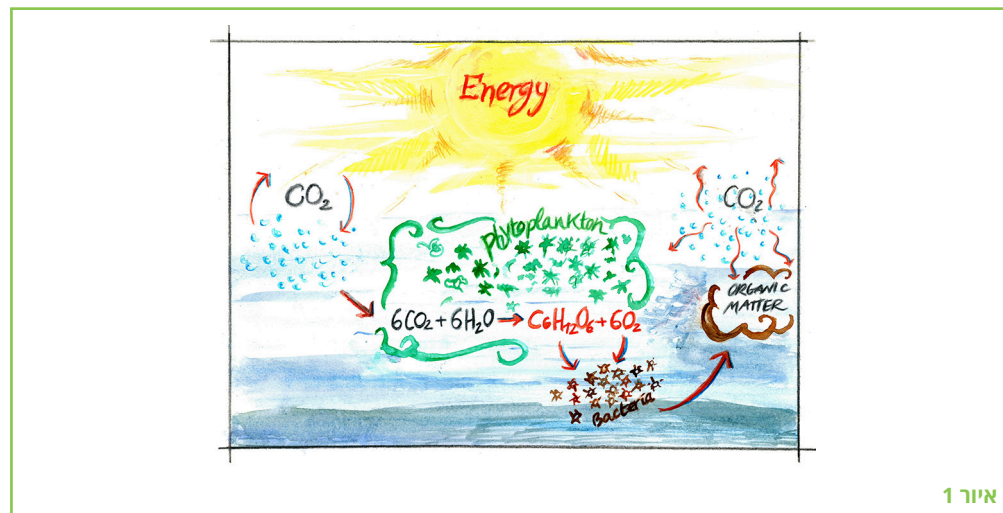 Energy
CO₂
CO₂
Phytoplankton
ORGANIC
MATTER
6CO₂ + 6H₂O → C₆H₁₂O₆ + 6O₂
Bacteria
איור 1